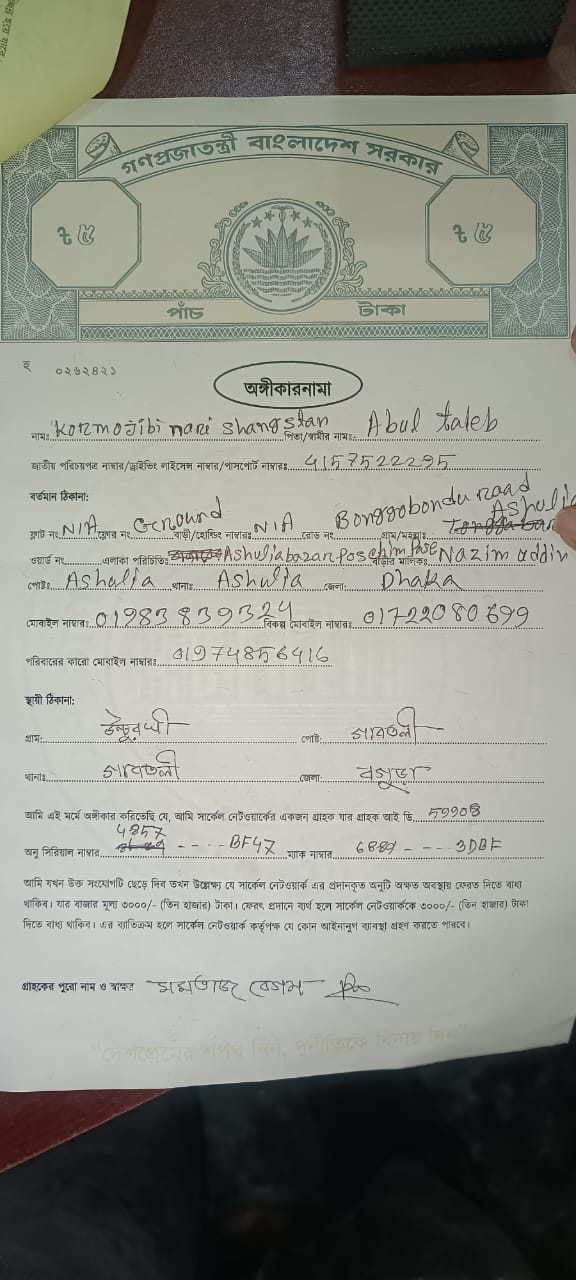 গণপ্রজাতন্ত্রী বাংলাদেশ সরকার
৳ ৫ ৳ ৫
পাঁচ টাকা
হ ০২৬২৪২১
অঙ্গীকারনামা
নামঃ Kormojibi nari shangstan পিতা/স্বামীর নামঃ Abul taleb
জাতীয় পরিচয়পত্র নাম্বার/ড্রাইভিং লাইসেন্স নাম্বার/পাসপোর্ট নাম্বারঃ 4157522295
বর্তমান ঠিকানা:
ফ্লাট নং N/A ফ্লোর নং Ground বাড়ী/হোল্ডিং নাম্বারঃ N/A রোড নং Bonggobondu road গ্রাম/মহল্লাঃ Ashulia
ওয়ার্ড নং এলাকা পরিচিতিঃ Ashulia bazar poschim pase বাড়ীর মালিকঃ Nazim uddin
পোষ্টঃ Ashulia থানাঃ Ashulia জেলা: Dhaka
মোবাইল নাম্বারঃ 01983839324 বিকল্প মোবাইল নাম্বারঃ 01722080699
পরিবারের কারো মোবাইল নাম্বারঃ 01974856416
স্থায়ী ঠিকানা:
গ্রাম: পোষ্ট: গাবতলী
থানাঃ গাবতলী জেলা: বগুড়া
আমি এই মর্মে অঙ্গীকার করিতেছি যে, আমি সার্কেল নেটওয়ার্কের একজন গ্রাহক যার গ্রাহক আই ডি 59908
অনু সিরিয়াল নাম্বার 4857 - - - - BF47 ম্যাক নাম্বার 6889 - - - - 3DBF
আমি যখন উক্ত সংযোগটি ছেড়ে দিব তখন উল্লেক্ষ্য যে সার্কেল নেটওয়ার্ক এর প্রদানকৃত অনুটি অক্ষত অবস্থায় ফেরত দিতে বাধ্য
থাকিব। যার বাজার মূল্য ৩০০০/- (তিন হাজার) টাকা। ফেরৎ প্রদানে ব্যর্থ হলে সার্কেল নেটওয়ার্ককে ৩০০০/- (তিন হাজার) টাকা
দিতে বাধ্য থাকিব। এর ব্যতিক্রম হলে সার্কেল নেটওয়ার্ক কর্তৃপক্ষ যে কোন আইনানুগ ব্যাবস্থা গ্রহণ করতে পারবে।
গ্রাহকের পুরো নাম ও স্বাক্ষর মমতাজ বেগম
"দেশপ্রেমের শপথ নিন, দুর্নীতিকে বিদায় দিন"